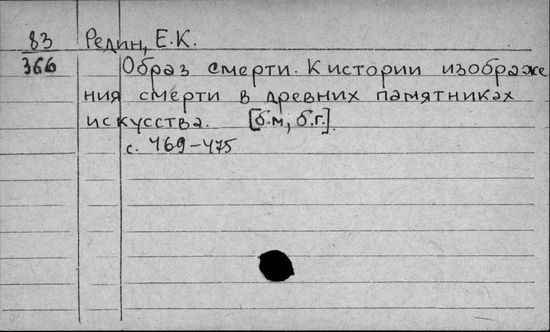 83 Редин, Е.К.
366 Образ смерти. К истории изображе
ния смерти в древних памятниках
искусства. [б.м, б.г.].
с. 469-475